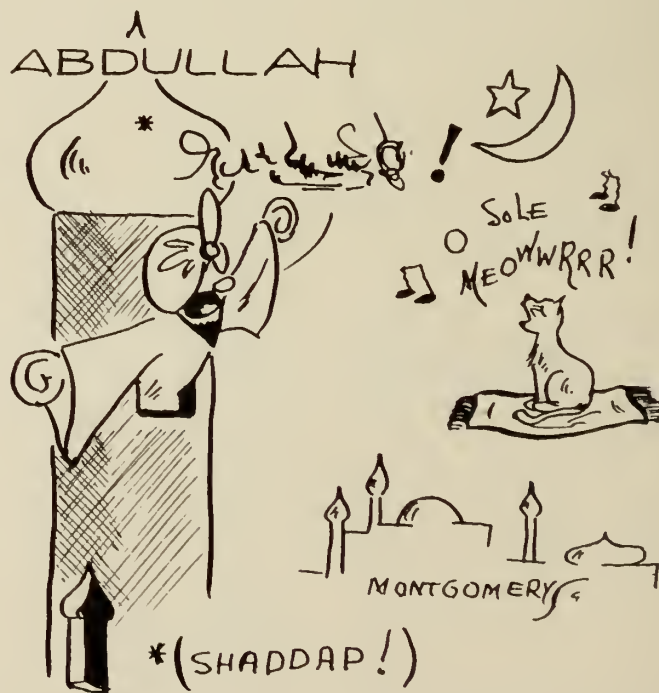 ABDULLAH
*
!
O SOLE
MEOWWRRR!
MONTGOMERY
*(SHADDAP!)